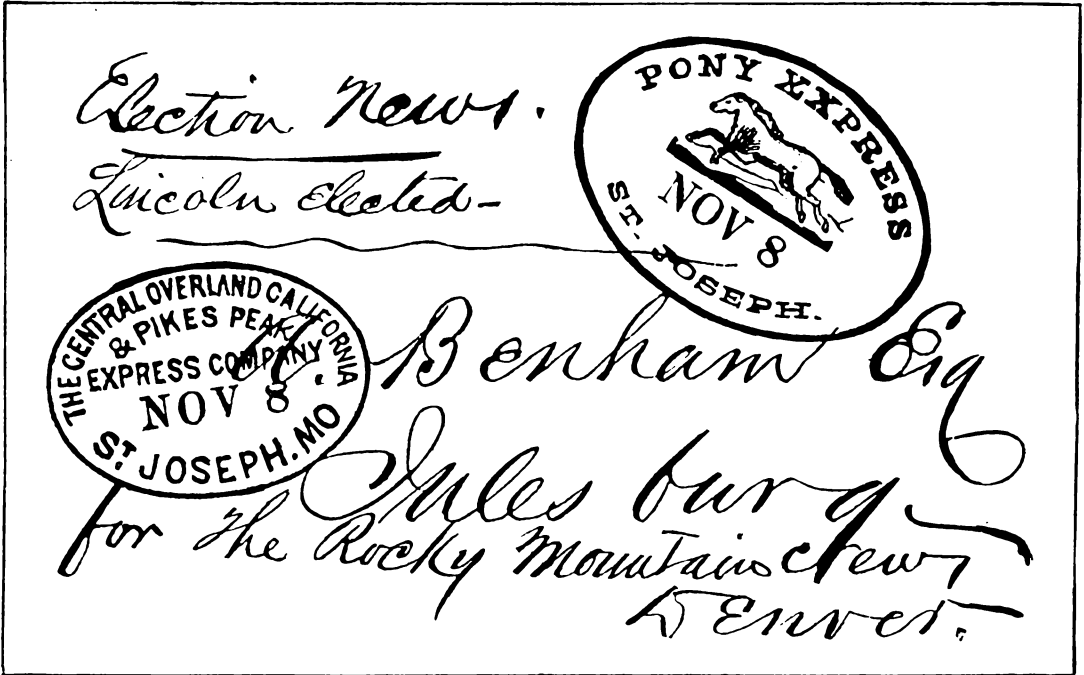 Election News.
Lincoln Elected-
PONY EXPRESS
NOV 8
ST. JOSEPH.
THE CENTRAL OVERLAND CALIFORNIA
& PIKES PEAK
EXPRESS COMPANY
NOV 8
ST. JOSEPH. MO
Benham Esq
Julesburg
for the Rocky Mountain News
Denver.